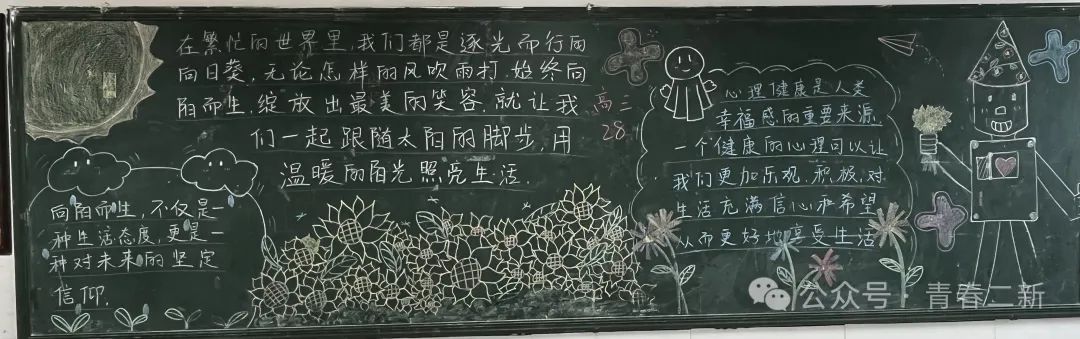 在繁忙的世界里,我们都是逐光而行的
向日葵,无论怎样的风吹雨打,始终向
阳而生,绽放出最美的笑容,就让我
们一起跟随太阳的脚步,用
温暖的阳光照亮生活.
高三
28
向阳而生,不仅是一
种生活态度,更是一
种对未来的坚定
信仰.
心理健康是人类
幸福感的重要来源,
一个健康的心理可以让
我们更加乐观,积极,对
生活充满信心和希望
从而更好地享受生活
公众号·青春二新